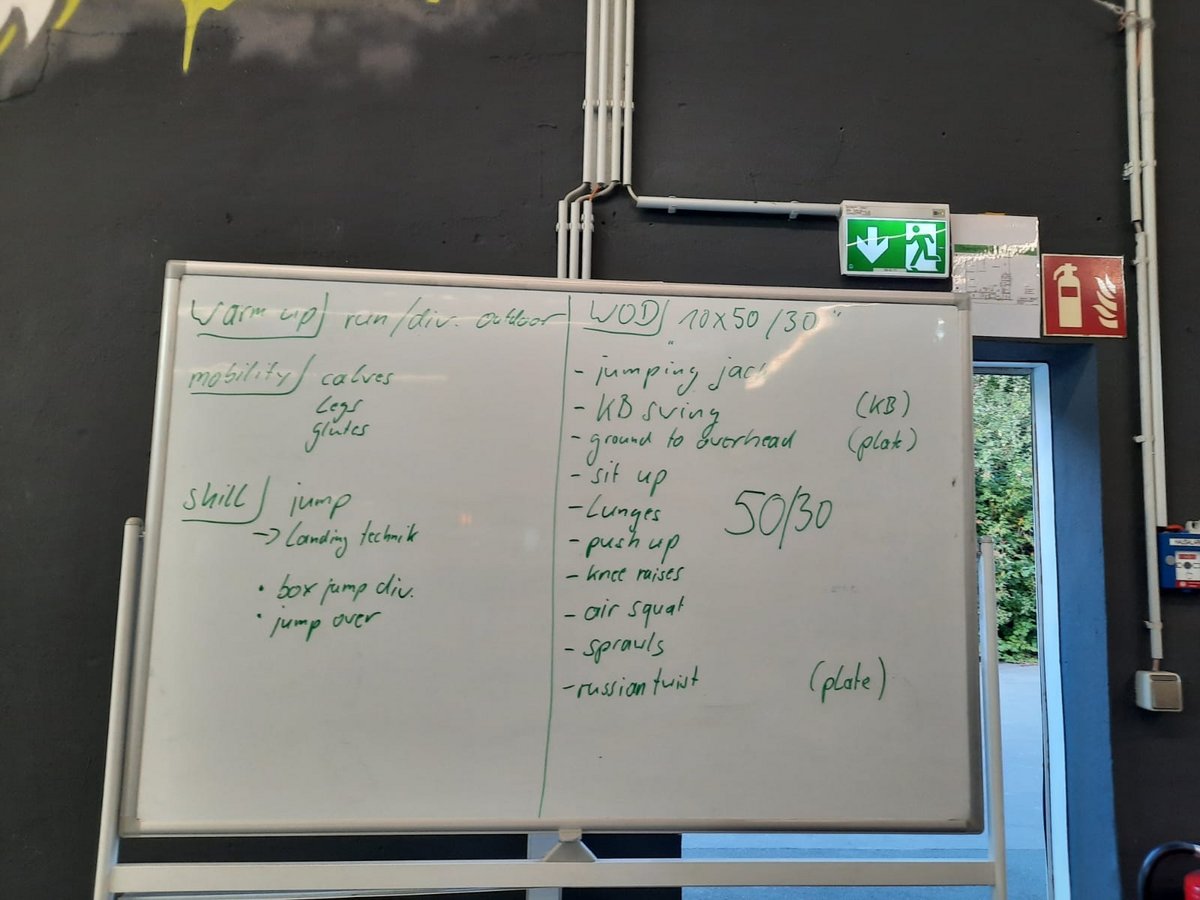 Warm up run/div. outdoor
mobility calves
Legs
glutes
skill jump
-> Landing technik
• box jump div.
• jump over
WOD 10x50/30"
- jumping jack
- KB swing (KB)
- ground to overhead (plate)
- sit up
- Lunges
50/30
- push up
- knee raises
- air squat
- sprawls
- russian twist (plate)